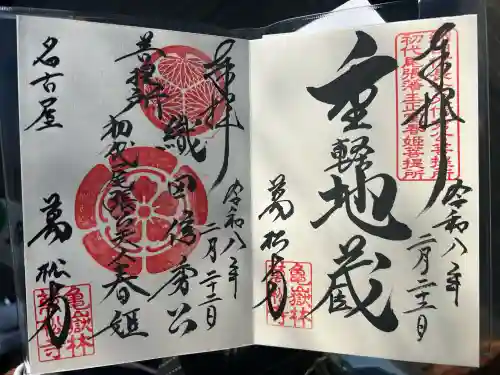 奉拝
令和八年
二月二十二日
織田信秀公
菩提所
初代尾張
春姫
名古屋
萬松寺
亀嶽林
萬松寺
公菩提所
初代尾張藩主正室春姫菩提所
奉拝
令和八年
二月二十二日
重軽地蔵
萬松寺
亀嶽林
萬松寺